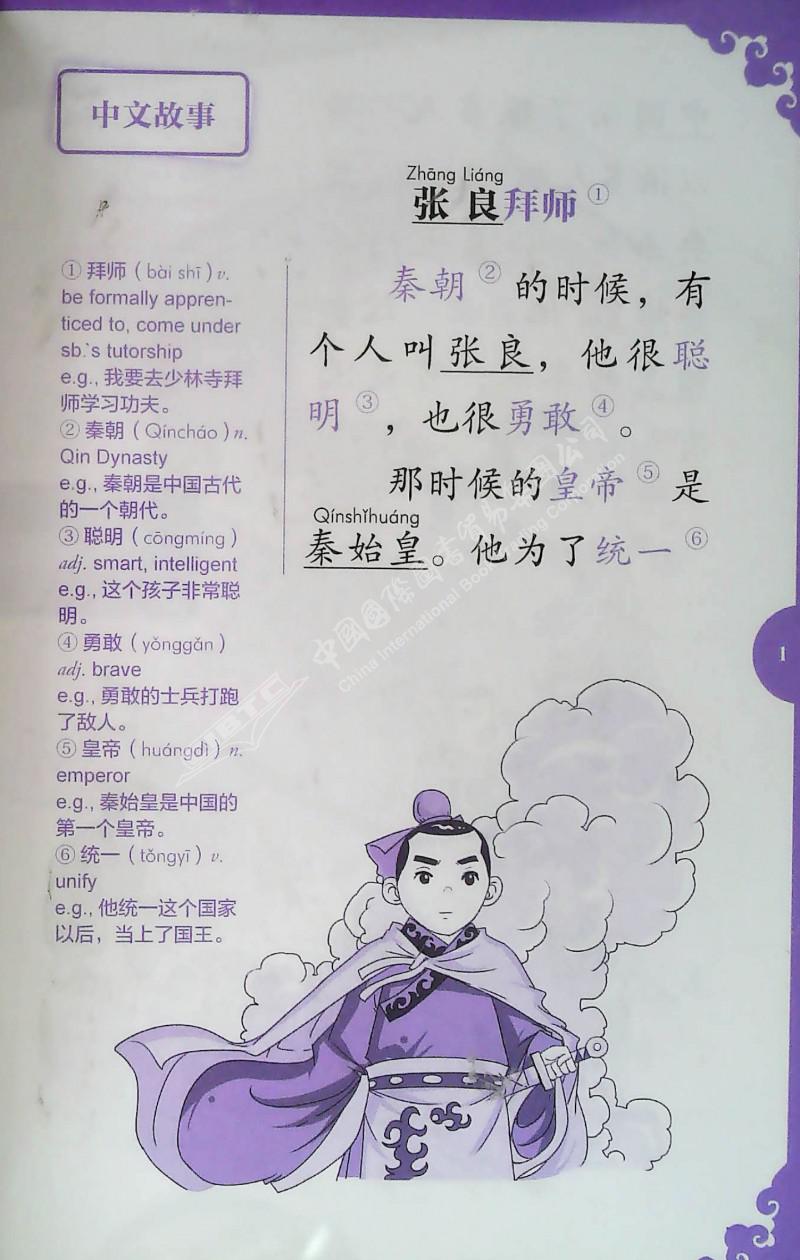 中文故事
Zhāng Liáng
张良拜师①
① 拜师（bài shī）v.
be formally appren-
ticed to, come under
sb.`s tutorship
e.g., 我要去少林寺拜
师学习功夫。
② 秦朝（Qíncháo）n.
Qin Dynasty
e.g., 秦朝是中国古代
的一个朝代。
③ 聪明（cōngmíng）
adj. smart, intelligent
e.g., 这个孩子非常聪
明。
④ 勇敢（yǒnggǎn）
adj. brave
e.g., 勇敢的士兵打跑
了敌人。
⑤ 皇帝（huángdì）n.
emperor
e.g., 秦始皇是中国的
第一个皇帝。
⑥ 统一（tǒngyī）v.
unify
e.g., 他统一这个国家
以后，当上了国王。
秦朝②的时候，有
个人叫张良，他很聪
明③，也很勇敢④。
那时候的皇帝⑤是
Qínshǐhuáng
秦始皇。他为了统一⑥
1
中国国际图书贸易集团公司
China International Book Trading Corporation